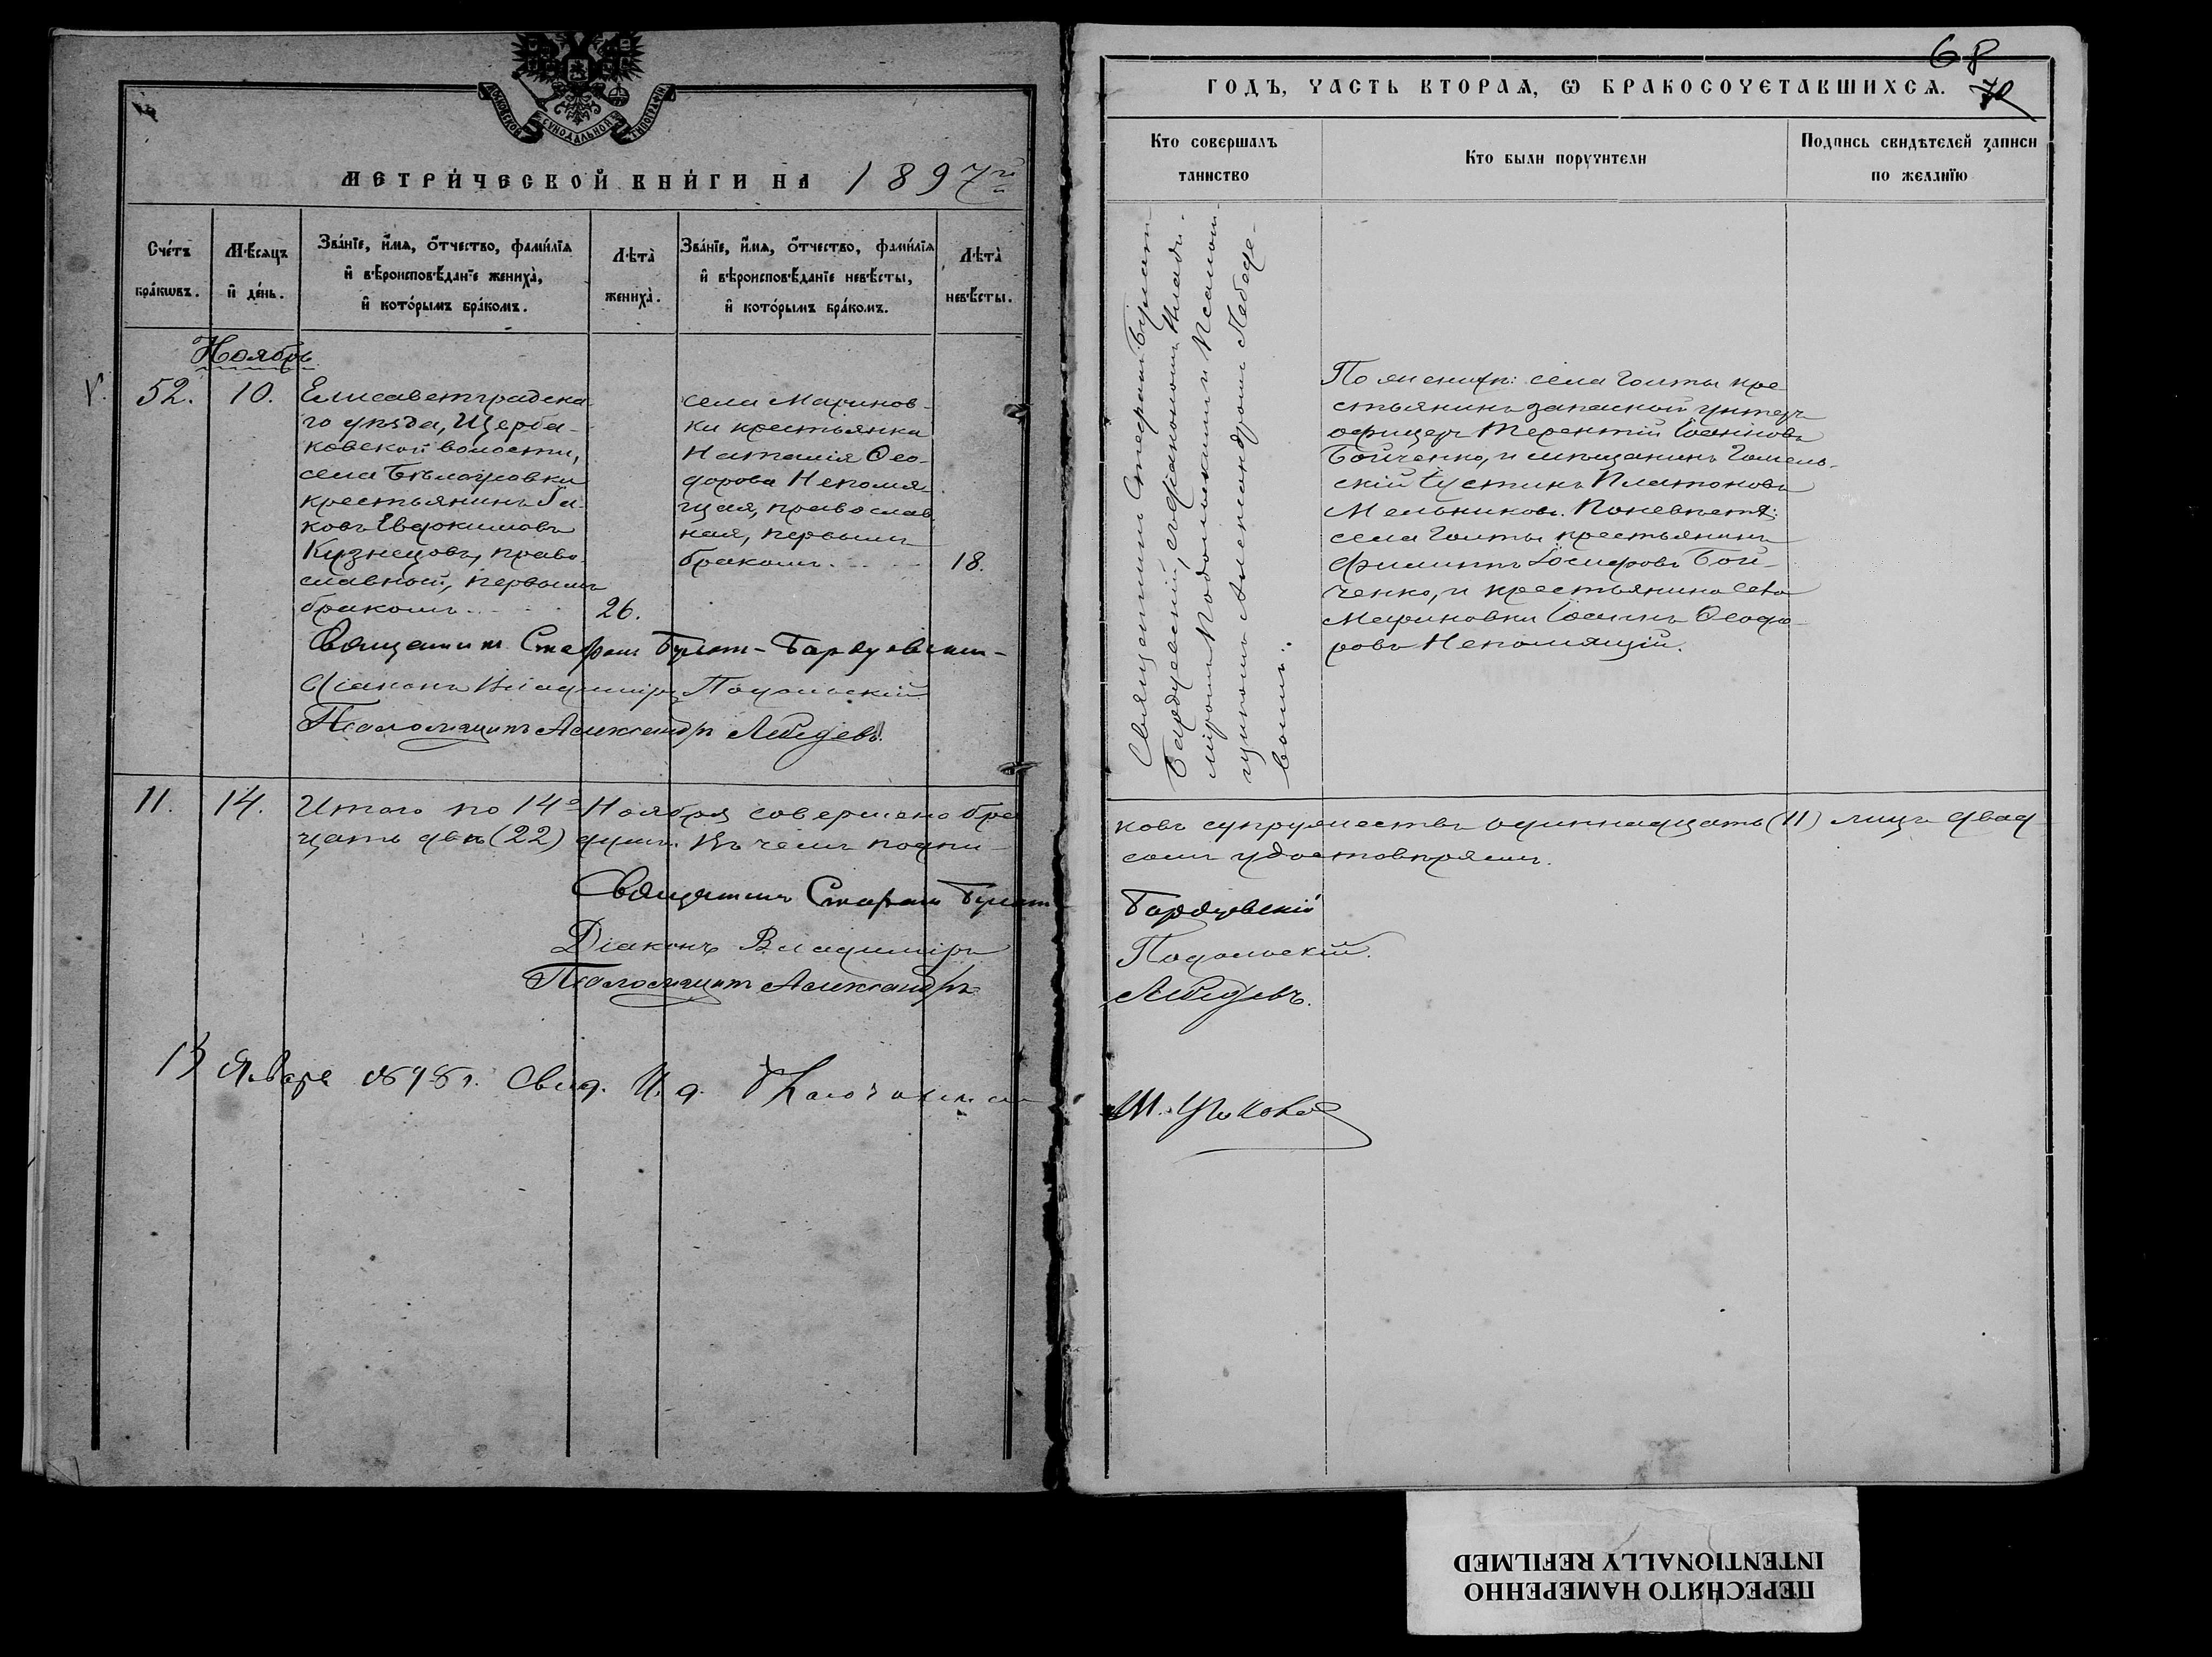 МОСКОВСКОЙ СѴНОДАЛЬНОЙ ТИПОГРАФІИ
МЕТРИ́ЧЕСКОЙ КНИ́ГИ НА 1897й
Сче́тъ бра́кѡвъ.
Мѣ́сяцъ и҆ де́нь.
Зва́нїе, и҆́мѧ, ѻ҆́тчество, фами́лїѧ
и҆ вѣроисповѣ́данїе жениха̀,
и҆ кото́рымъ бра́комъ.
Лѣ́та̀
жениха̀.
Зва́нїе, и҆́мѧ, ѻ҆́тчество, фами́лїѧ
и҆ вѣроисповѣ́данїе невѣ́сты,
и҆ кото́рымъ бра́комъ.
Лѣ́та̀
невѣ́сты.
Ноябрь
V. 52. 10.
Елисаветградска-
го уѣзда, Щерба-
ковской волости,
села
крестьянинъ Іа-
ковъ Евдокимовъ
Кузнецовъ, право-
славный, первымъ
бракомъ 26.
села Маринов-
ки крестьянка
Наталія Ѳео-
дорова Непомя-
щая, православ
ная, первымъ
бракомъ 18.
Священникъ Стефанъ Булат-Бардуовскій
Діаконъ Владиміръ Подольскій
Псаломщикъ Александръ Лебедевъ.
11. 14. Итого по 14е Ноября совершено бра
цать два (22) души. Въ чемъ подпи-
Священникъ Стефанъ Булат
Діаконъ Владиміръ
Псаломщикъ Александръ
13 Января 1898 г. Свид. И. д.
68
70
ГОДЪ, ЧАСТЬ ВТОРАѦ, Ѡ БРАКОСОЧЕТАВШИХСѦ.
Кто совершалъ
таинство
Кто были поручители
Подпись свидѣтелей записи
по желанїю
Священникъ Стефанъ Булат-
Бардуовскій, съ діакономъ Влади-
міромъ Подольскимъ и Псалом-
щикомъ Александромъ Лебеде-
вымъ.
По женихѣ: села Голты кре
стьянинъ запасной унтеръ
офицеръ Терентій Іоанновъ
Бойченко, и мѣщанинъ Гомель-
скій Іустинъ Платоновъ
Мельниковъ. По невѣстѣ:
села Голты крестьянинъ
Филиппъ Іосифовъ Бой-
ченко, и крестьянинъ села
Мариновки Іоаннъ Ѳеодо-
ровъ Непомящій.
ковъ супружествъ одиннадцать (11) лицъ двад
семъ удостовѣряемъ.
Бардуовскій
Подольскій.
Лебедевъ.
ПЕРЕСНЯТО НАМЕРЕННО
INTENTIONALLY REFILMED